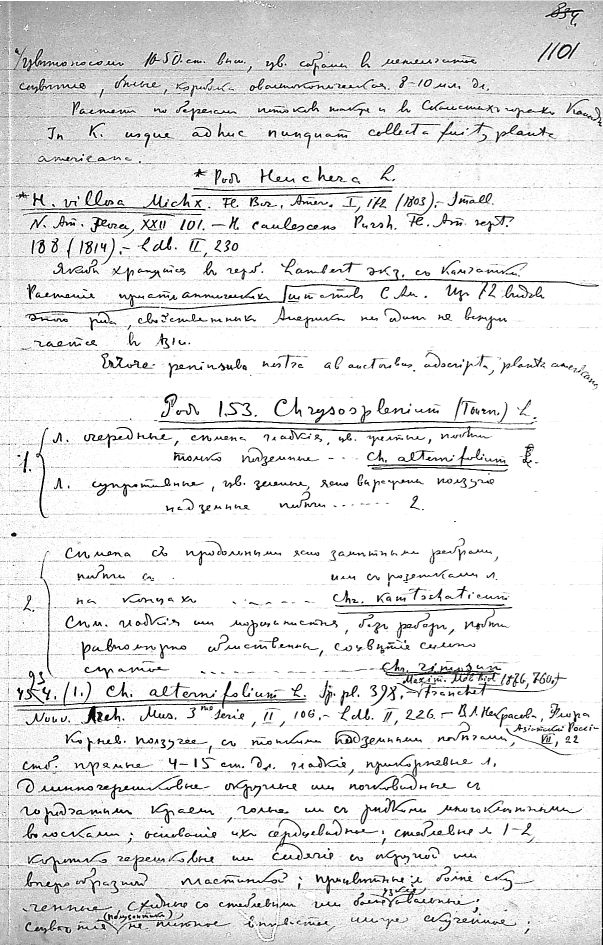 834.
1101
цветоносом 10-50 ст. выс., цв. собраны в метельчатое
соцветие, белые, коробка овальноконическая 8-10 мм. дл.
Растет по берегам потоков и в Скалистых горах Канады
In K. usque adhuc nunquam collecta fuit, planta
americana.
* Родъ Heuchera L.
* H. villosa Michx. Fl. Bor. Amer. I, 172 (1803).- Small.
N. Am. Flora, XXII 101.- H. caulescens Pursh. Fl. Am. sept.
188 (1814).- Ldb. II, 230
Якобы хранится в герб. Lambert экз. с Камчатки.
Растение приатлантических штатов С Ам. Из 72 видов
этого рода, свойственных Америке ни один не встре
чается в Азии.
Errore peninsula nostra ab auctoribus adscripta, planta americana
Родъ 153. Chrysosplenium (Tourn.) L.
1. л. очередные, семена гладкие, цв. желтые, побеги
только подземные --- Ch. alternifolium L.
Л. супротивные, цв. зеленые, ясно выражены ползучие
надземные побеги ------ 2.
2. Семена съ продольными ясно заметными ребрами,
побеги с . или с розетками л.
на концахъ ------ Chr. kamtschaticum
Сем. гладкие или морщинистые, безъ ребер, побеги
равномерно облиственны, соцветие сильно
сжатое ------ Ch. rimosum
Maxim. Mél. biol. 1876, 760
93
454. (1.) Ch. alternifolium L. Sp. pl. 398.- Franchet
Nouv. Arch. Mus. 3me Serie, II, 106.- Ldb. II, 226.- В.Л. Некрасова, Флора
Азиатской России VII, 22
Корнев. ползучее, с тонкими подземными побегами,
стб. прямые 4-15 ст. дл. гладкие, прикорневые л.
длинночерешковые округлые или почковидные с
городчатым краем, голые или с редкими многоклетными
волосками; основание их сердцевидное; стеблевые л 1-2,
коротко черешковые или сидячие со округлой или
веерообразной пластинкой; прицветные л более ску
ченные, сходные со стеблевыми или более узкие овальные;
соцветие (полузонтик) не плотное вначале, скученное;